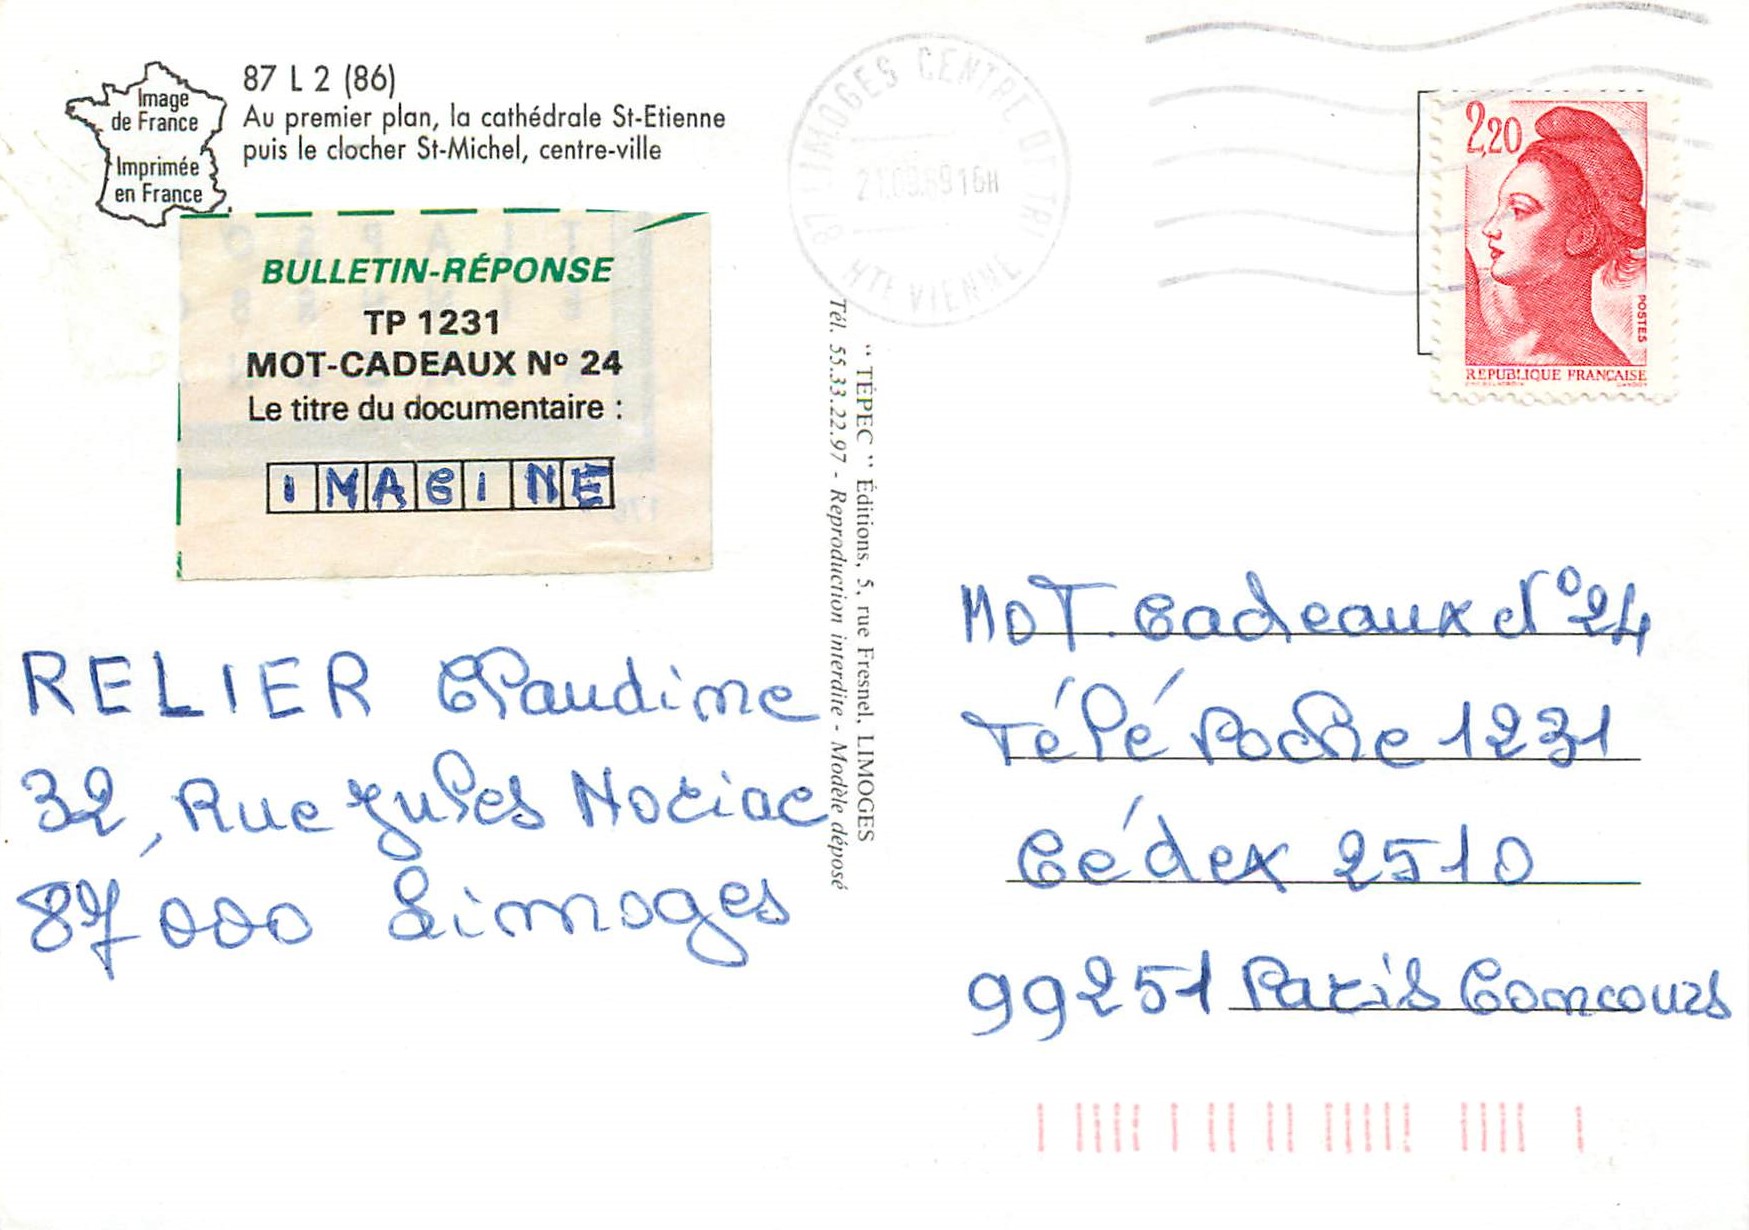 Image
de France
Imprimée
en France
87 L 2 (86)
Au premier plan, la cathédrale St-Etienne
puis le clocher St-Michel, centre-ville
BULLETIN-RÉPONSE
TP 1231
MOT-CADEAUX Nº 24
Le titre du documentaire :
IMAGINE
RELIER Claudine
32, Rue Jules Noriac
87000 Limoges
“TÉPEC“ Éditions, 5, rue Fresnel, LIMOGES
Tél. 55.33.22.97 - Reproduction interdite - Modèle déposé
87 LIMOGES CENTRE DE TRI
HTE VIENNE
16H
2,20
POSTES
REPUBLIQUE FRANÇAISE
MOT. Cadeaux N°24
Télé Poche 1231
Cédex 2510
99251 Paris Concours